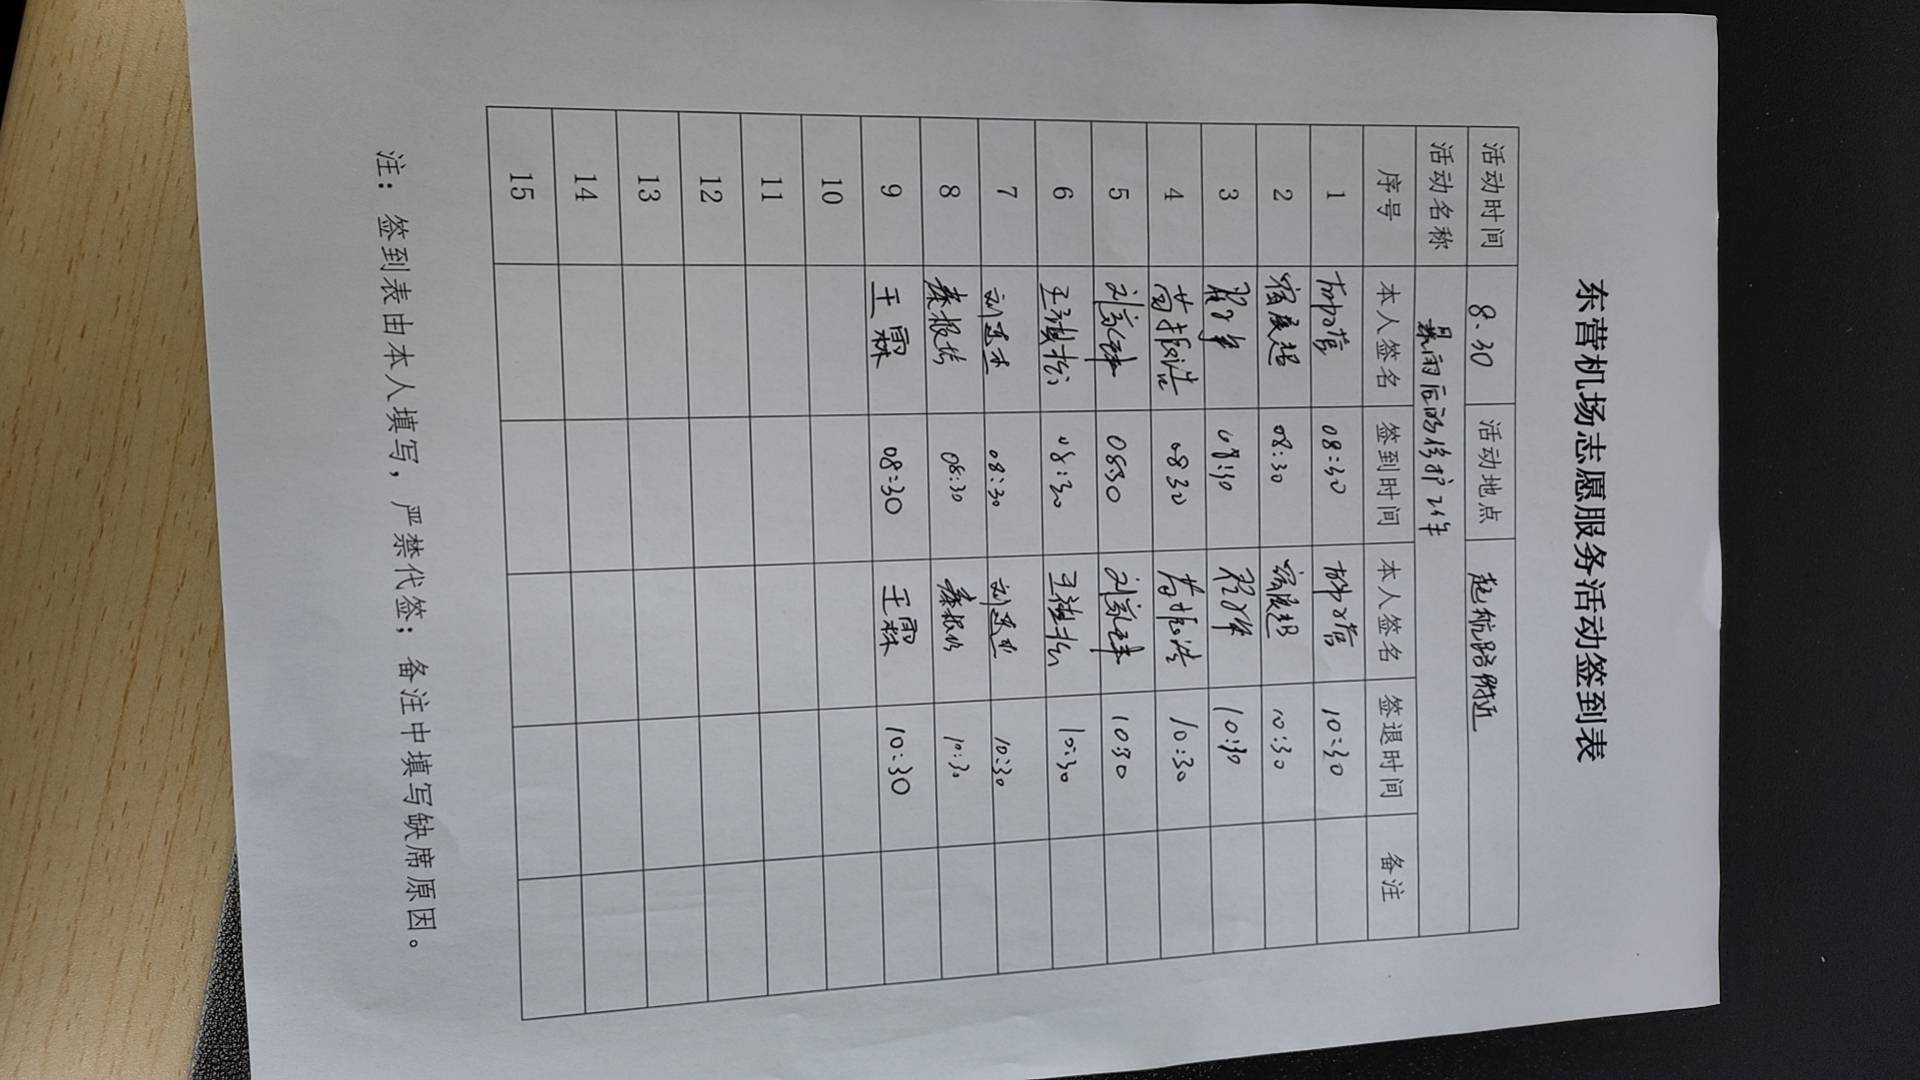 东营机场志愿服务活动签到表
活动时间 8.30 活动地点 起航路附近
活动名称 暴雨后的修护工作
序号 本人签名 签到时间 本人签名 签退时间 备注
1 08:30 10:30
2 宿展超 08:30 宿展超 10:30
3 08:30 10:30
4 08:30 10:30
5 0830 1030
6 08:30 10:30
7 08:30 10:30
8 秦振 08:30 秦振 10:30
9 王霖 08:30 王霖 10:30
10
11
12
13
14
15
注：签到表由本人填写，严禁代签；备注中填写缺席原因。